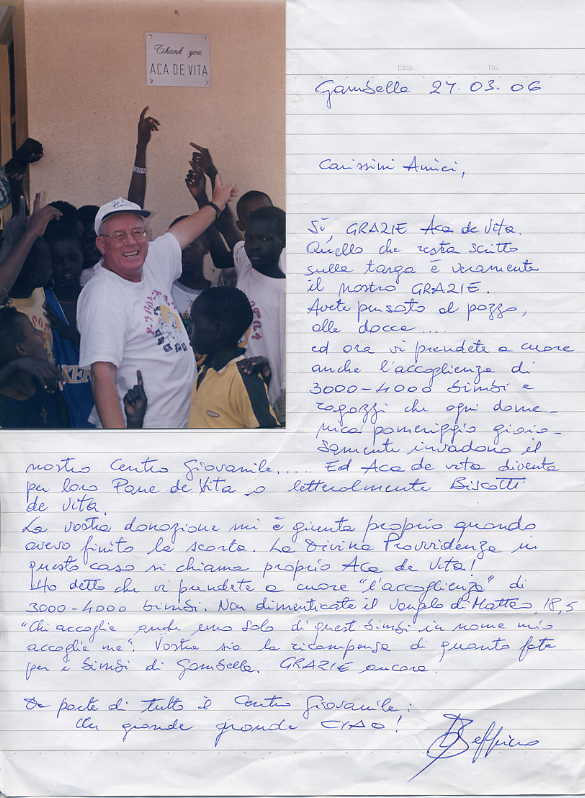 Thank you
ACA DE VITA
Gambella 27.03.06
Carissimi Amici,
Sì, GRAZIE Aca de Vita.
Quello che resta scritto
sulla targa è veramente
il nostro GRAZIE.
Avete pensato al pozzo,
alle docce....
ed ora vi prendete a cuore
anche l'accoglienza di
3000-4000 bimbi e
ragazzi che ogni dome-
nica pomeriggio gioio-
samente invadono il
nostro Centro Giovanile..... Ed Aca de vita diventa
per loro Pane de Vita, o letteralmente Biscotti
de vita.
La vostra donazione mi è giunta proprio quando
avevo finito la scorta. La Divina Provvidenza in
questo caso si chiama proprio Aca de Vita!
Ho detto che vi prendete a cuore "l'accoglienza" di
3000-4000 bimbi. Non dimenticate il Vangelo di Matteo, 18,5
"Chi accoglie anche uno solo di questi bimbi in nome mio
accoglie me". Vostra sia la ricompensa di quanto fate
per i bimbi di Gambella. GRAZIE ancora.
Da parte di tutto il Centro Giovanile:
Un grande grande CIAO!